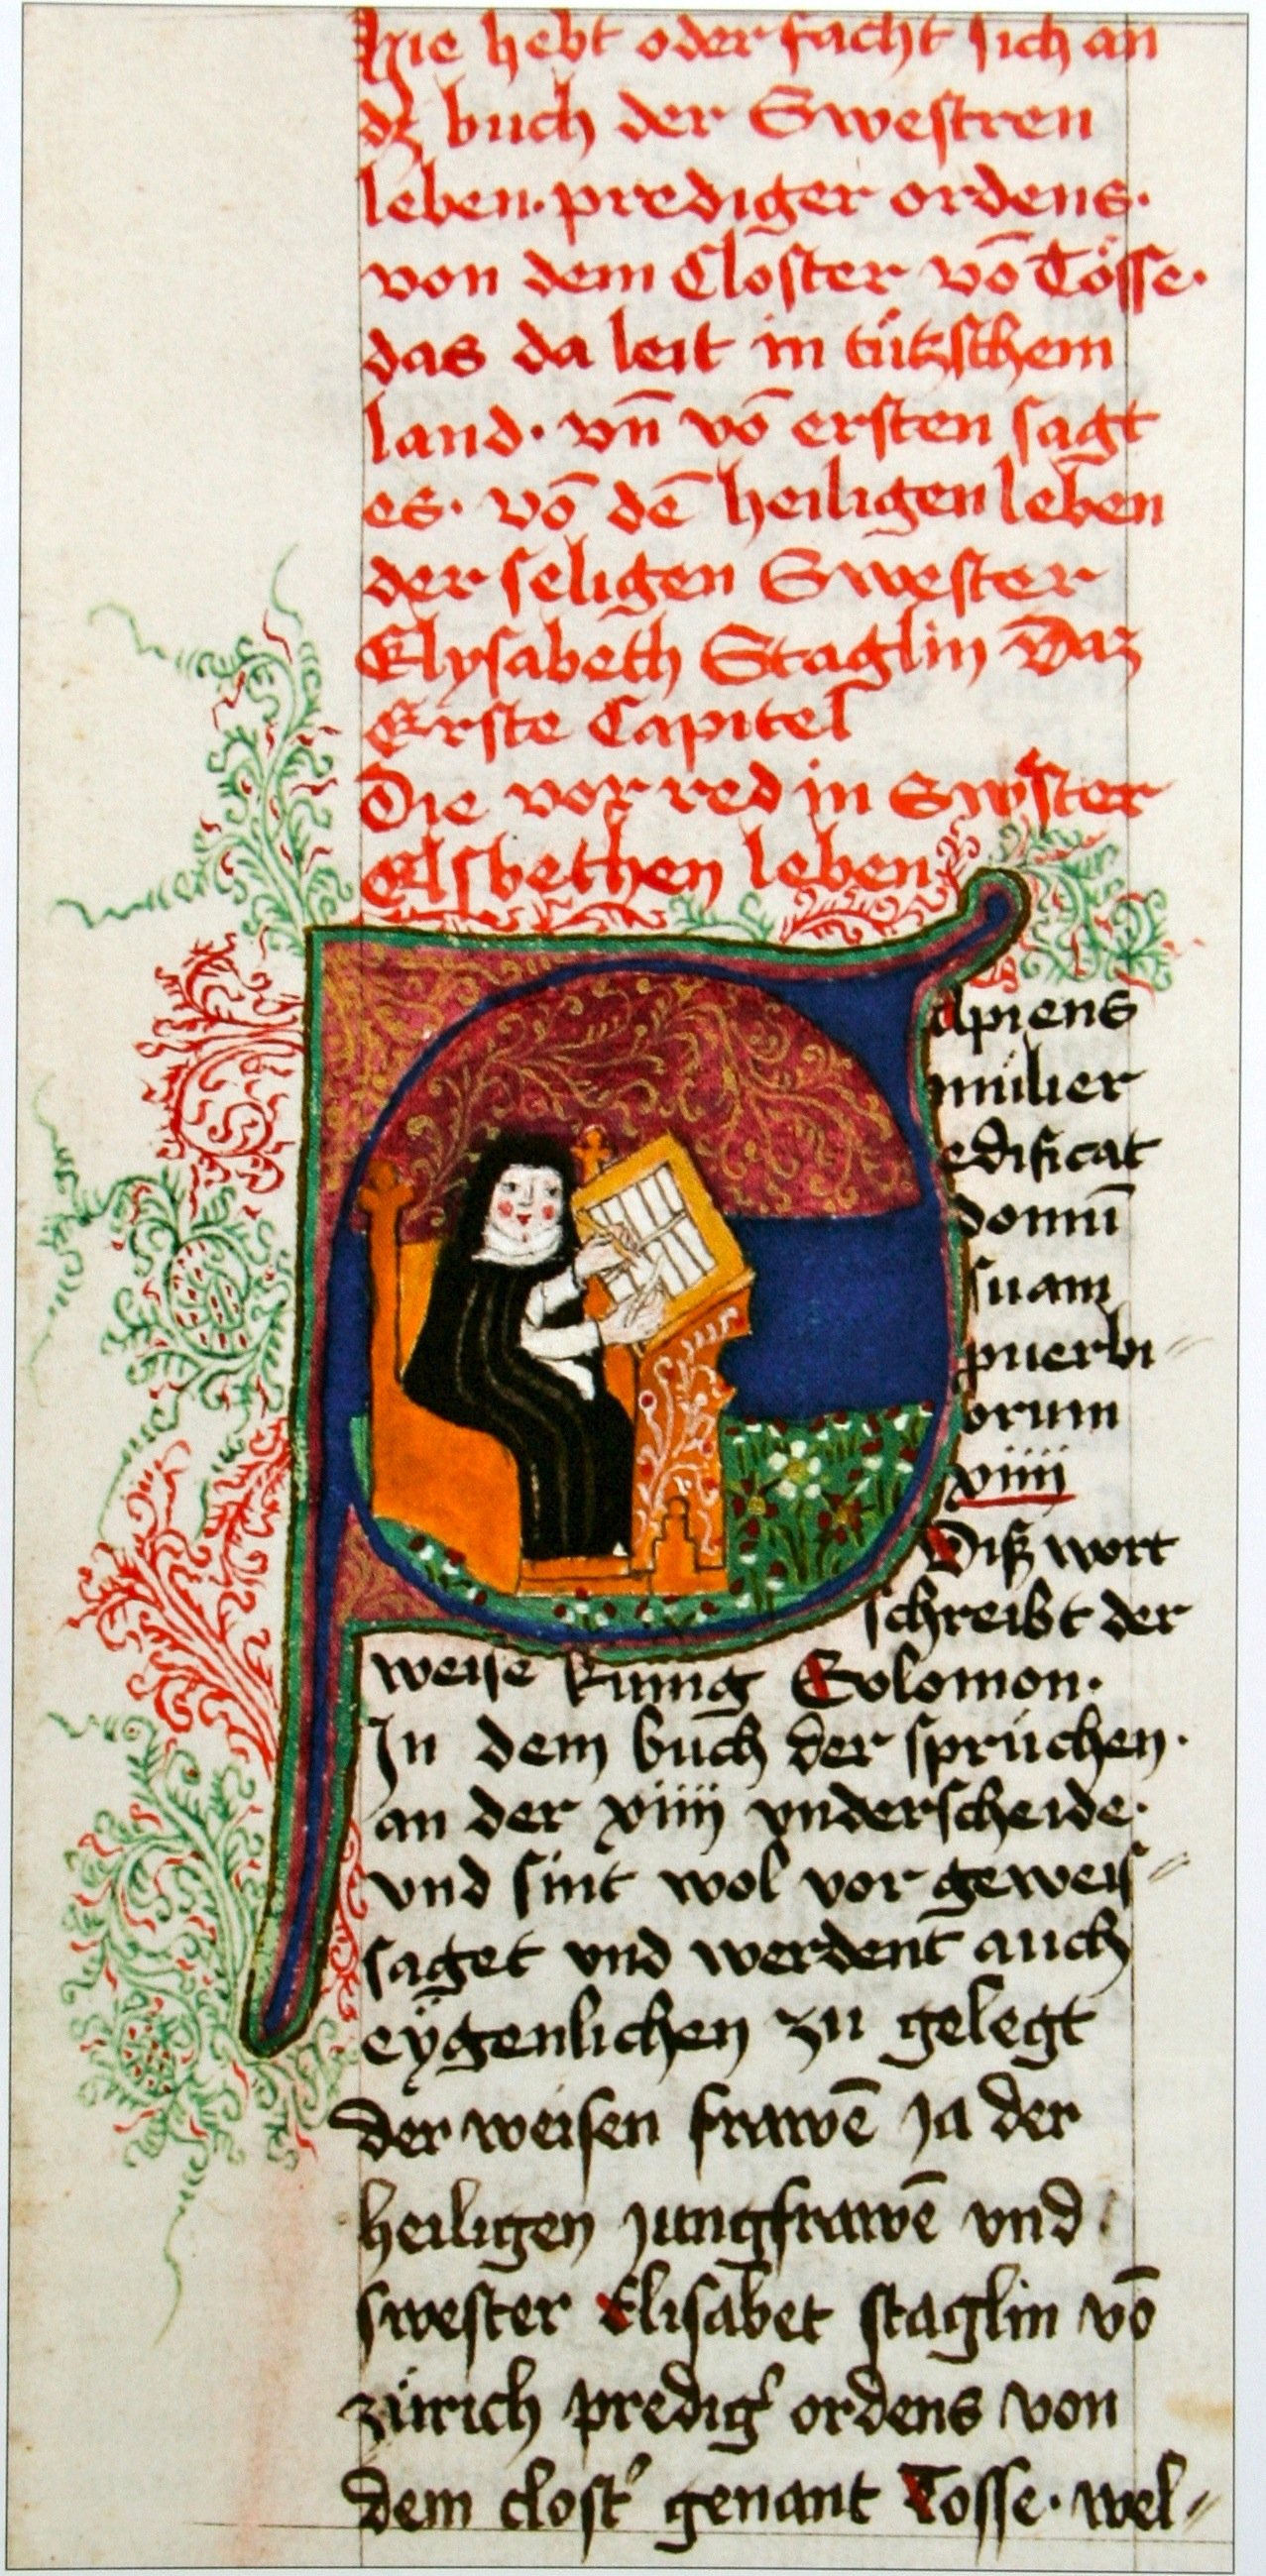 Hie hebt oder facht sich an
dz buch der Swestren
leben. prediger ordens.
von dem Closter võ Tösse.
das da leit in tützschem
land. vñ võ ersten sagt
es. võ dē heiligen leben
der seligen Swester
Elysabeth Staglin Daz
Erste Capitel
Die vor red in Swster
Elsbethen leben
Sapiens
mulier
edificat
domū
suam
puerbi
orum
xiiii
Diß wort
schreibt der
weise kunig Solomon.
In dem buch der sprüchen.
an der xiiii vnderscheide.
vnd sint wol vor geweis
saget vnd werdent auch
eÿgenlichen zu gelegt
der weisen frawē Ja der
heiligen Jungfrawē vnd
swester Elisabet staglin võ
zürich predig' ordens von
dem clost' genant Tosse. wel